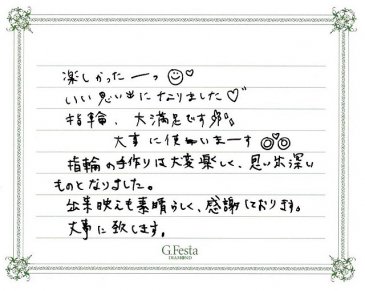 楽しかったーっ☺♡
いい思い出になりました♡
指輪、大満足です
大事に使いまーす
指輪の手作りは大変楽しく、思い出深い
ものとなりました。
出来映えも素晴らしく、感謝しております。
大事に致します。
G.Festa
DIAMOND